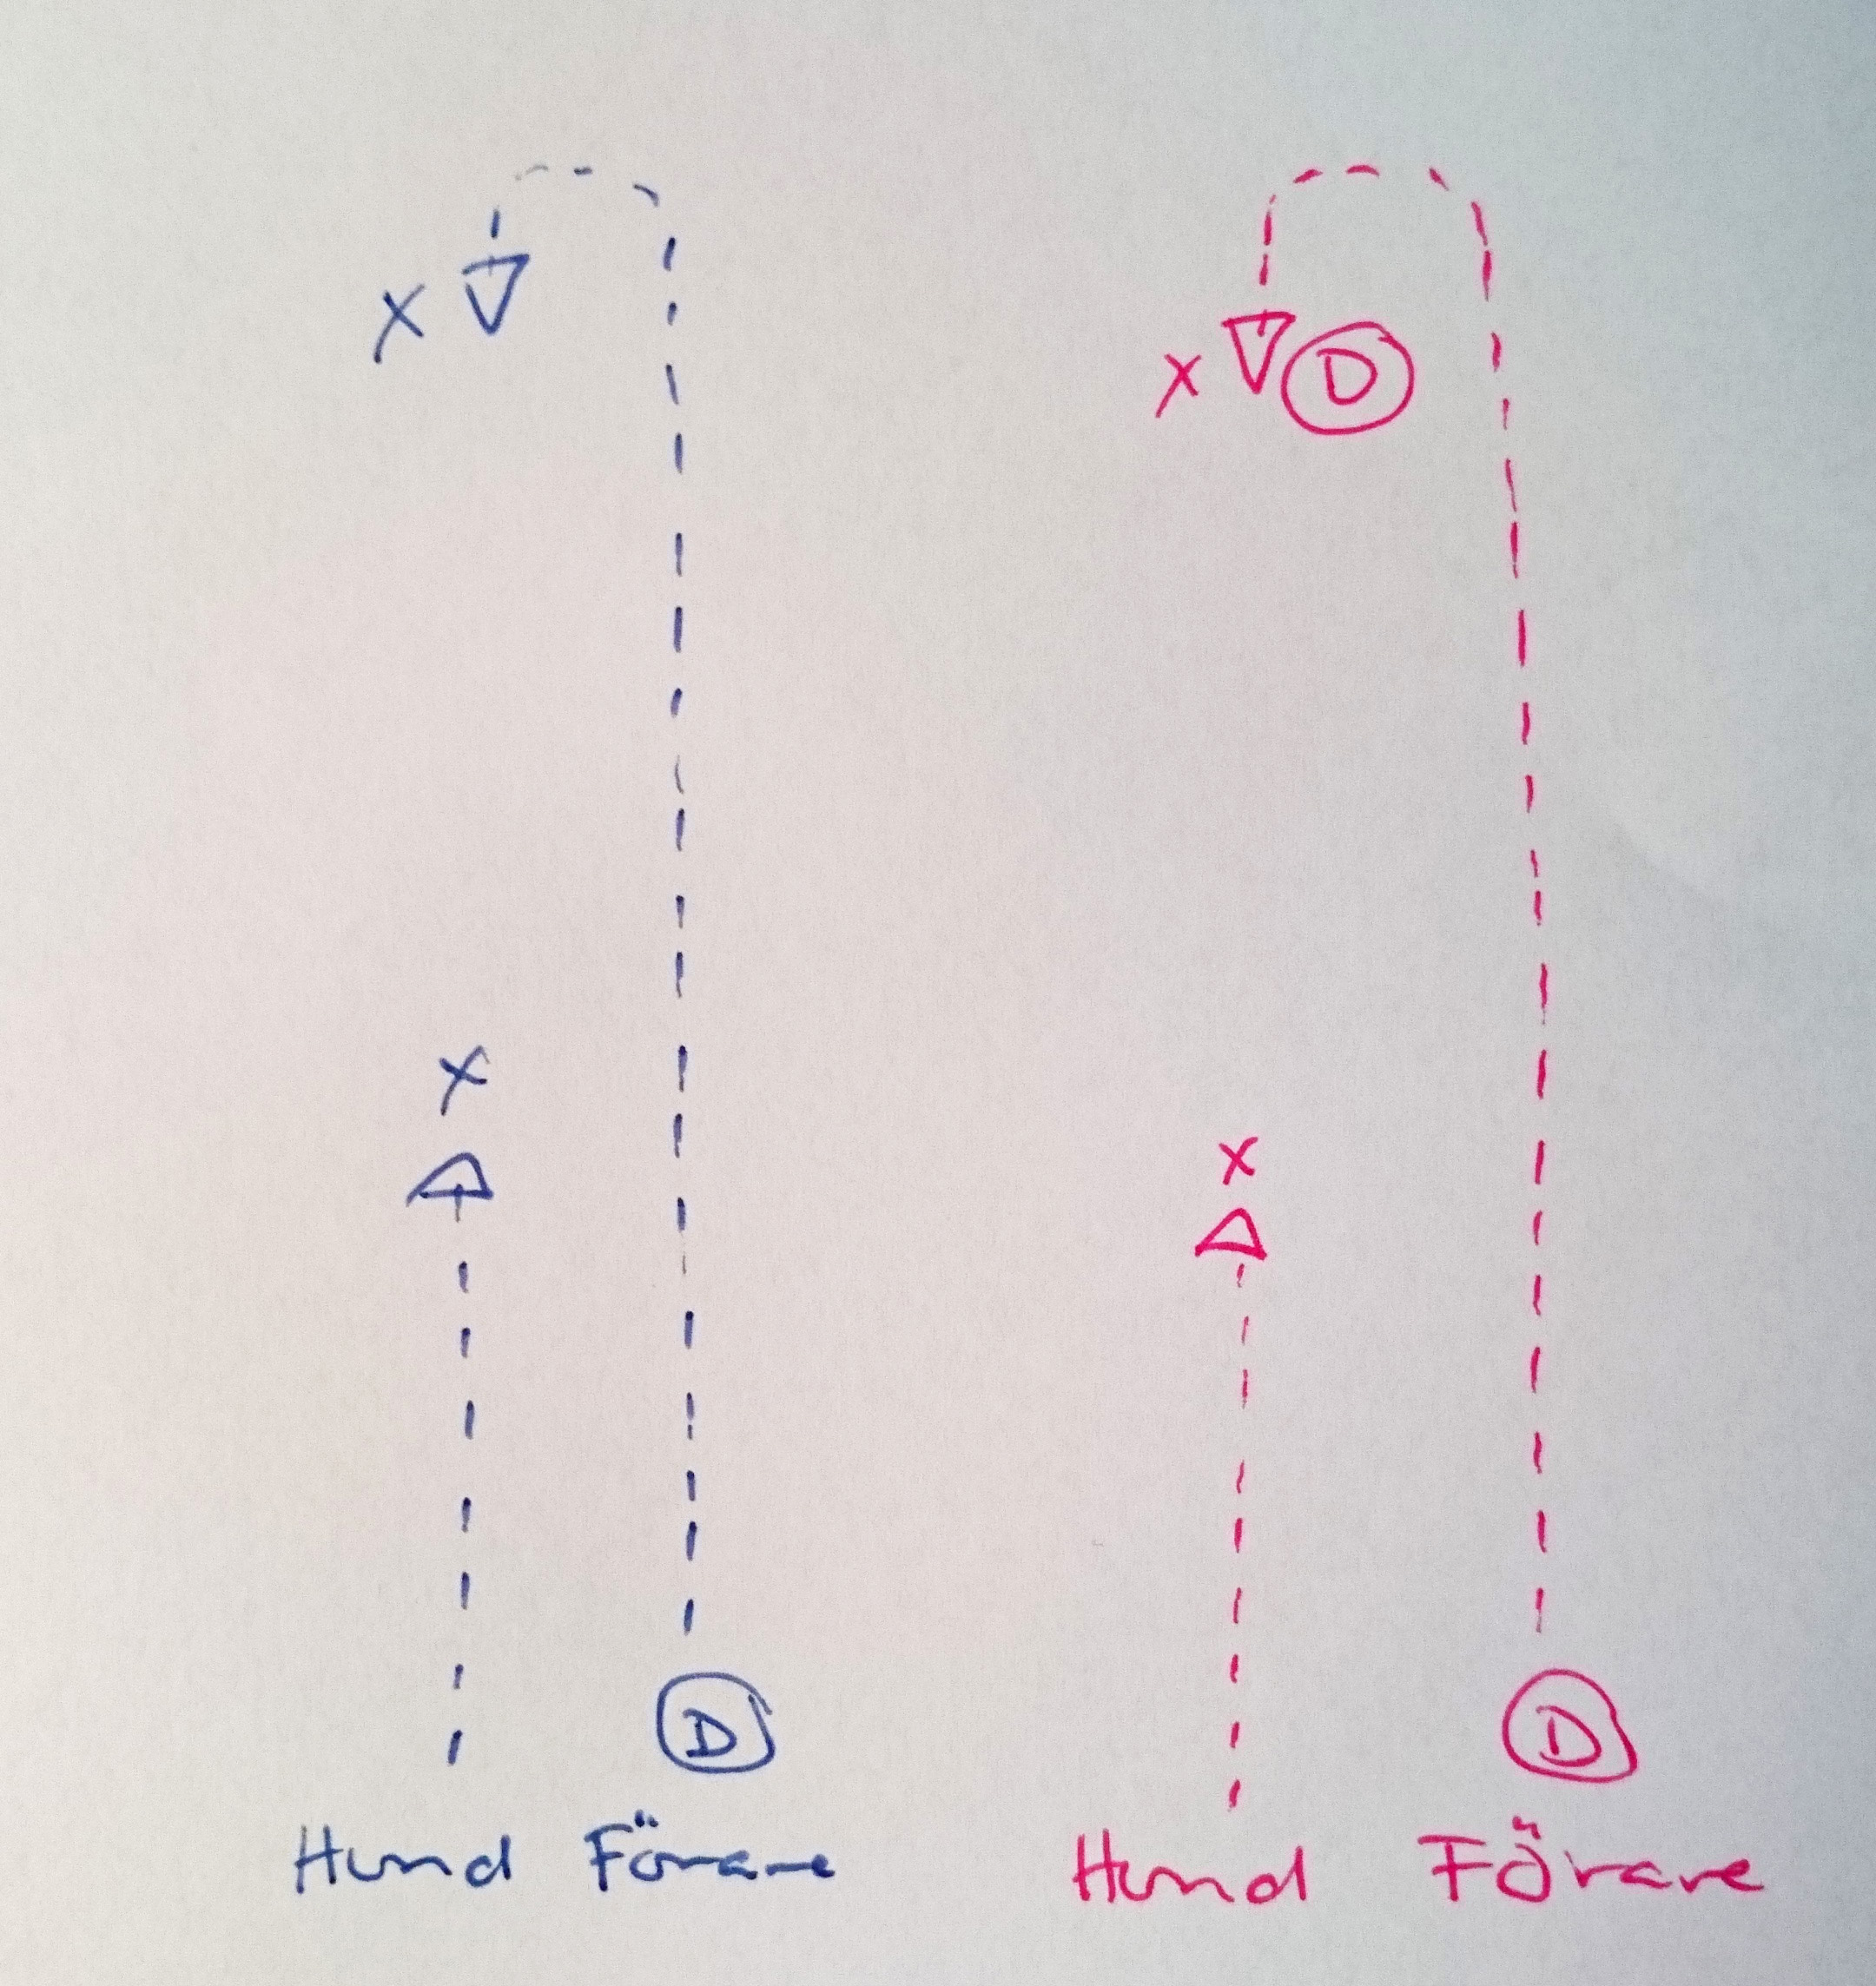 X
X D
X
X
D D
Hund Förare Hund Förare